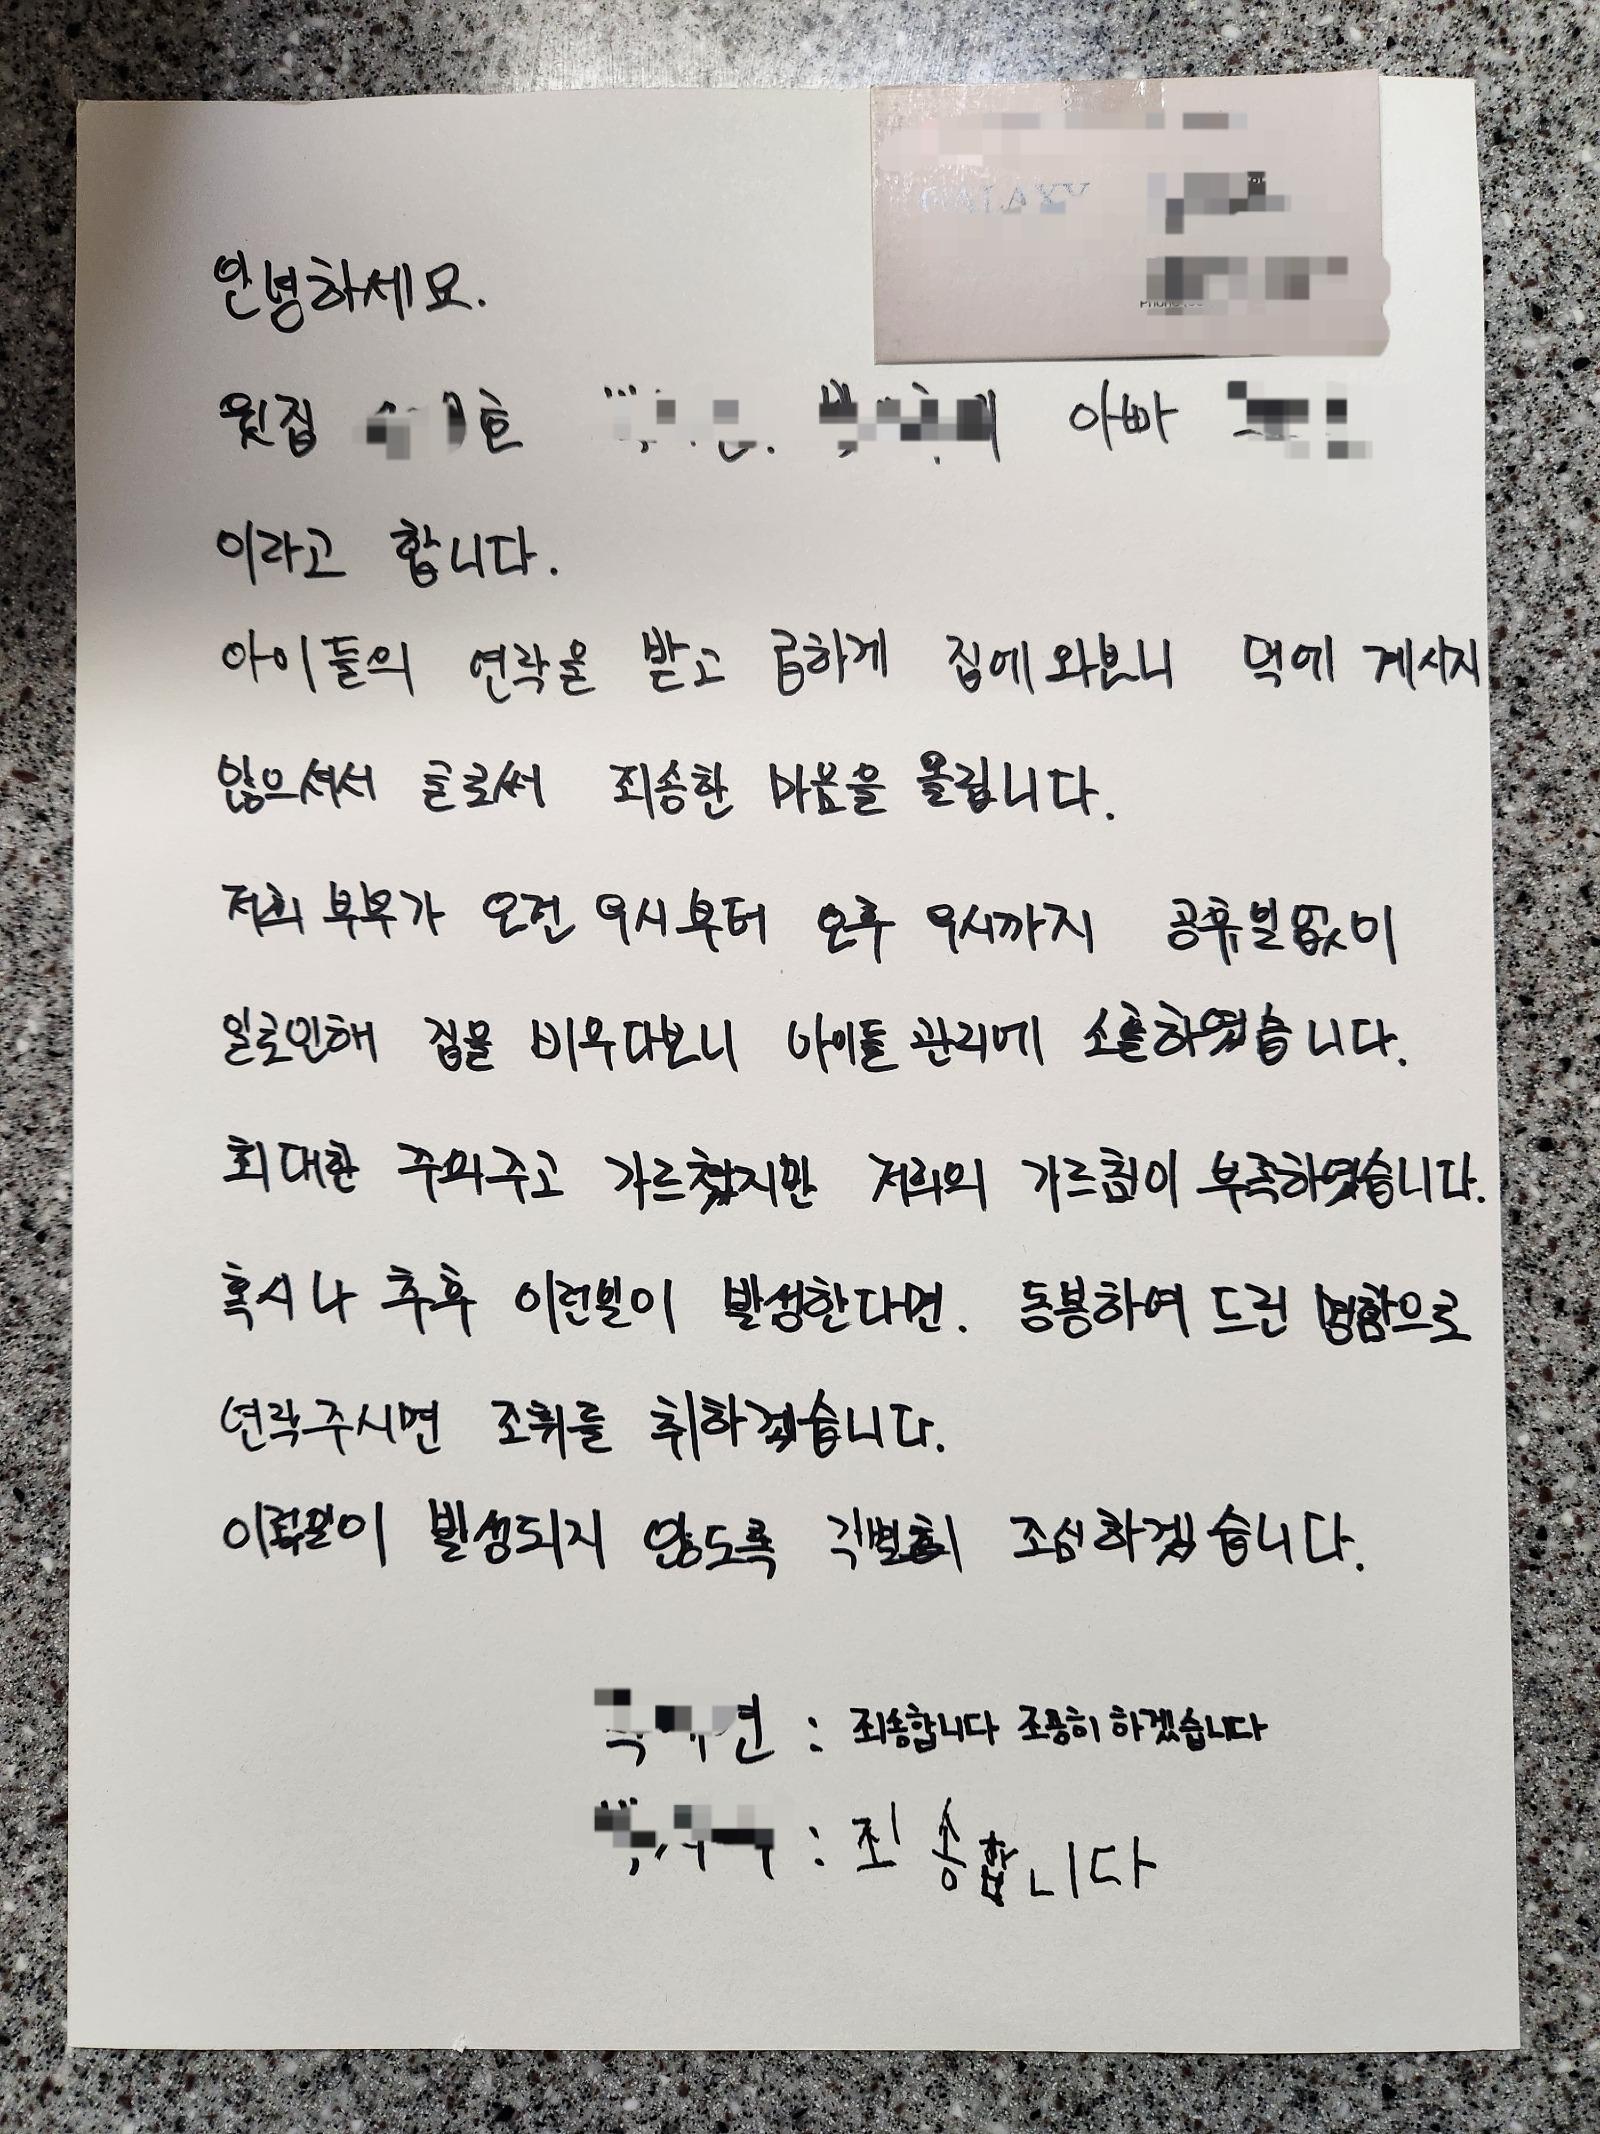 GALAXY
안녕하세요.
윗집 호 아빠
이라고 합니다.
아이들의 연락을 받고 급하게 집에 와보니 댁에 계시지
않으셔서 글로써 죄송한 마음을 올립니다.
저희 부부가 오전 9시부터 오후 9시까지 공휴일없이
일로인해 집을 비우다보니 아이들 관리에 소홀하였습니다.
최대한 주의주고 가르쳤지만 저희의 가르침이 부족하였습니다.
혹시나 추후 이런일이 발생한다면. 동봉하여 드린 명함으로
연락주시면 조취를 취하겠습니다.
이런일이 발생되지 않도록 각별히 조심하겠습니다.
: 죄송합니다 조용히 하겠습니다
: 죄송합니다